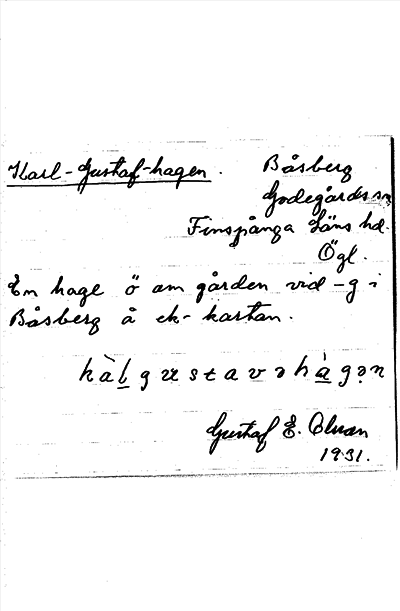 Karl-Gustaf-hagen. Båsberg
Godegårds sn
Finspånga Läns hd.
Ögl.
En hage ö om gården vid -g i
Båsberg å ek-kartan.
kàl gustavəhàgən
Gustaf E. Olsson
1931.